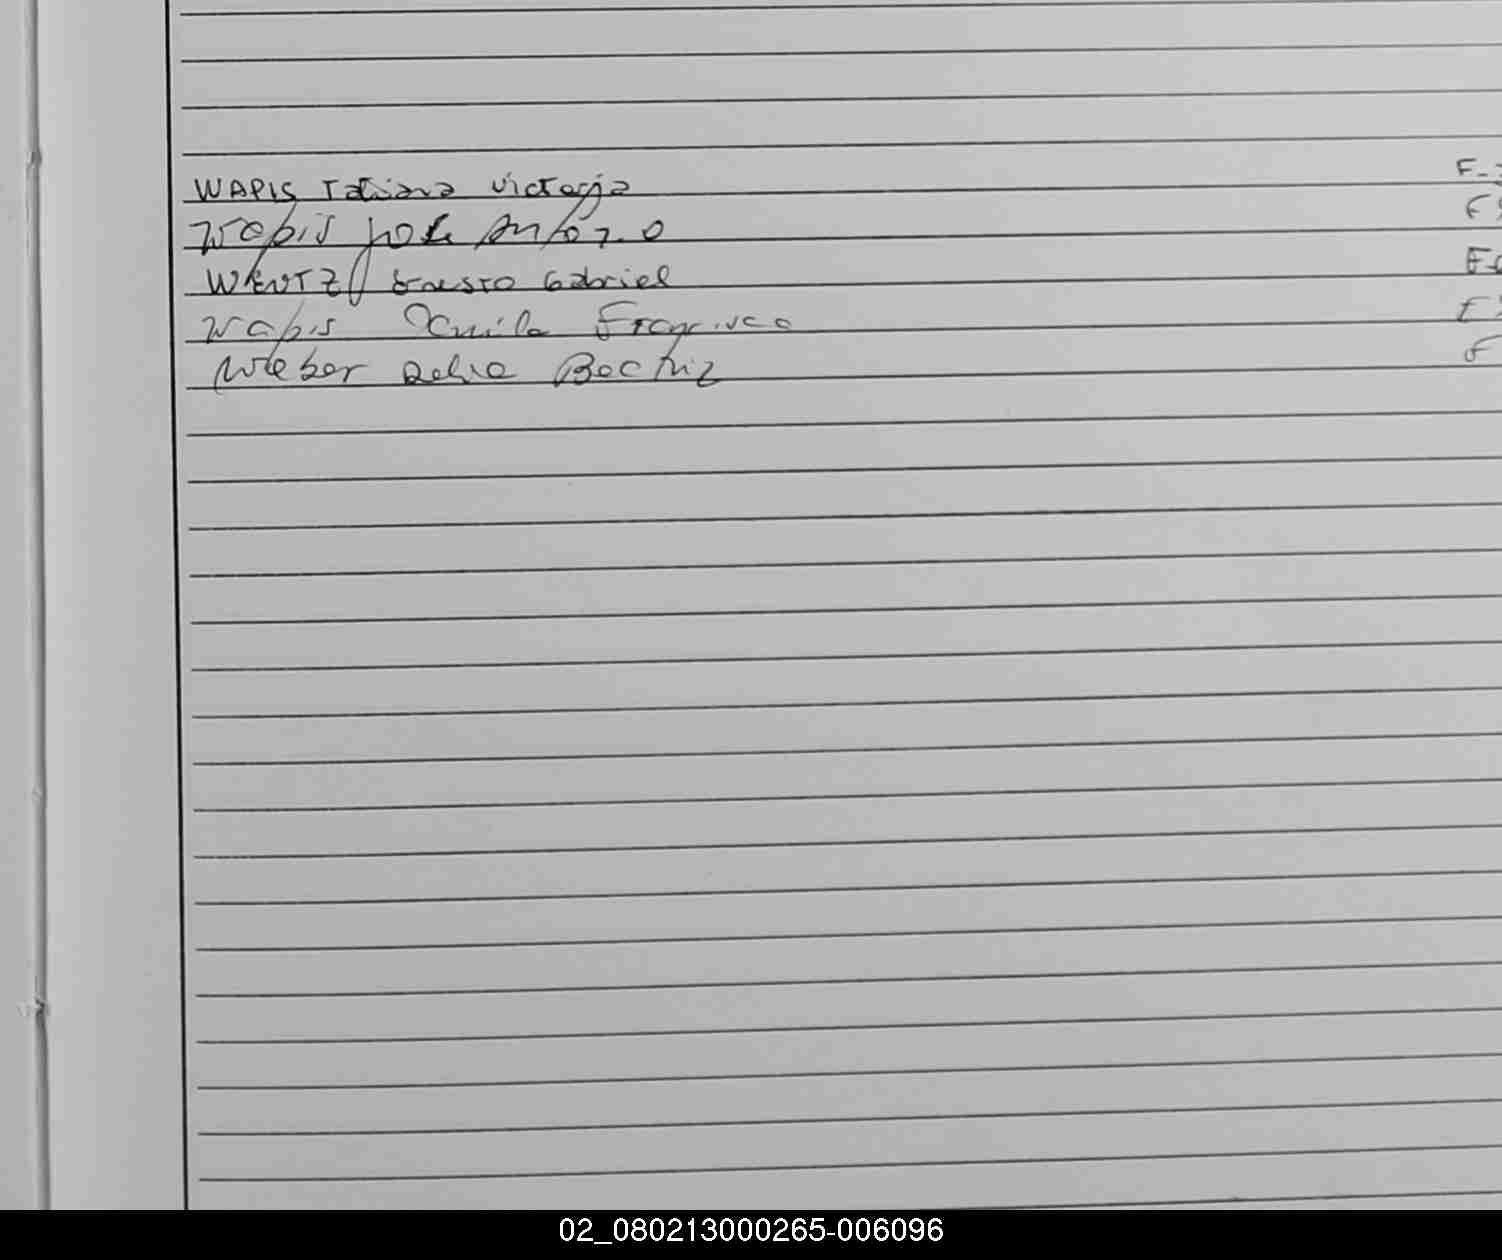 WAPIS Tatiana Victoria F-
Wapis José Antonio F
WENTZ Ernesto Gabriel F
Wapis Camila Francisca F
Weber Delia Beatriz F
02_080213000265-006096